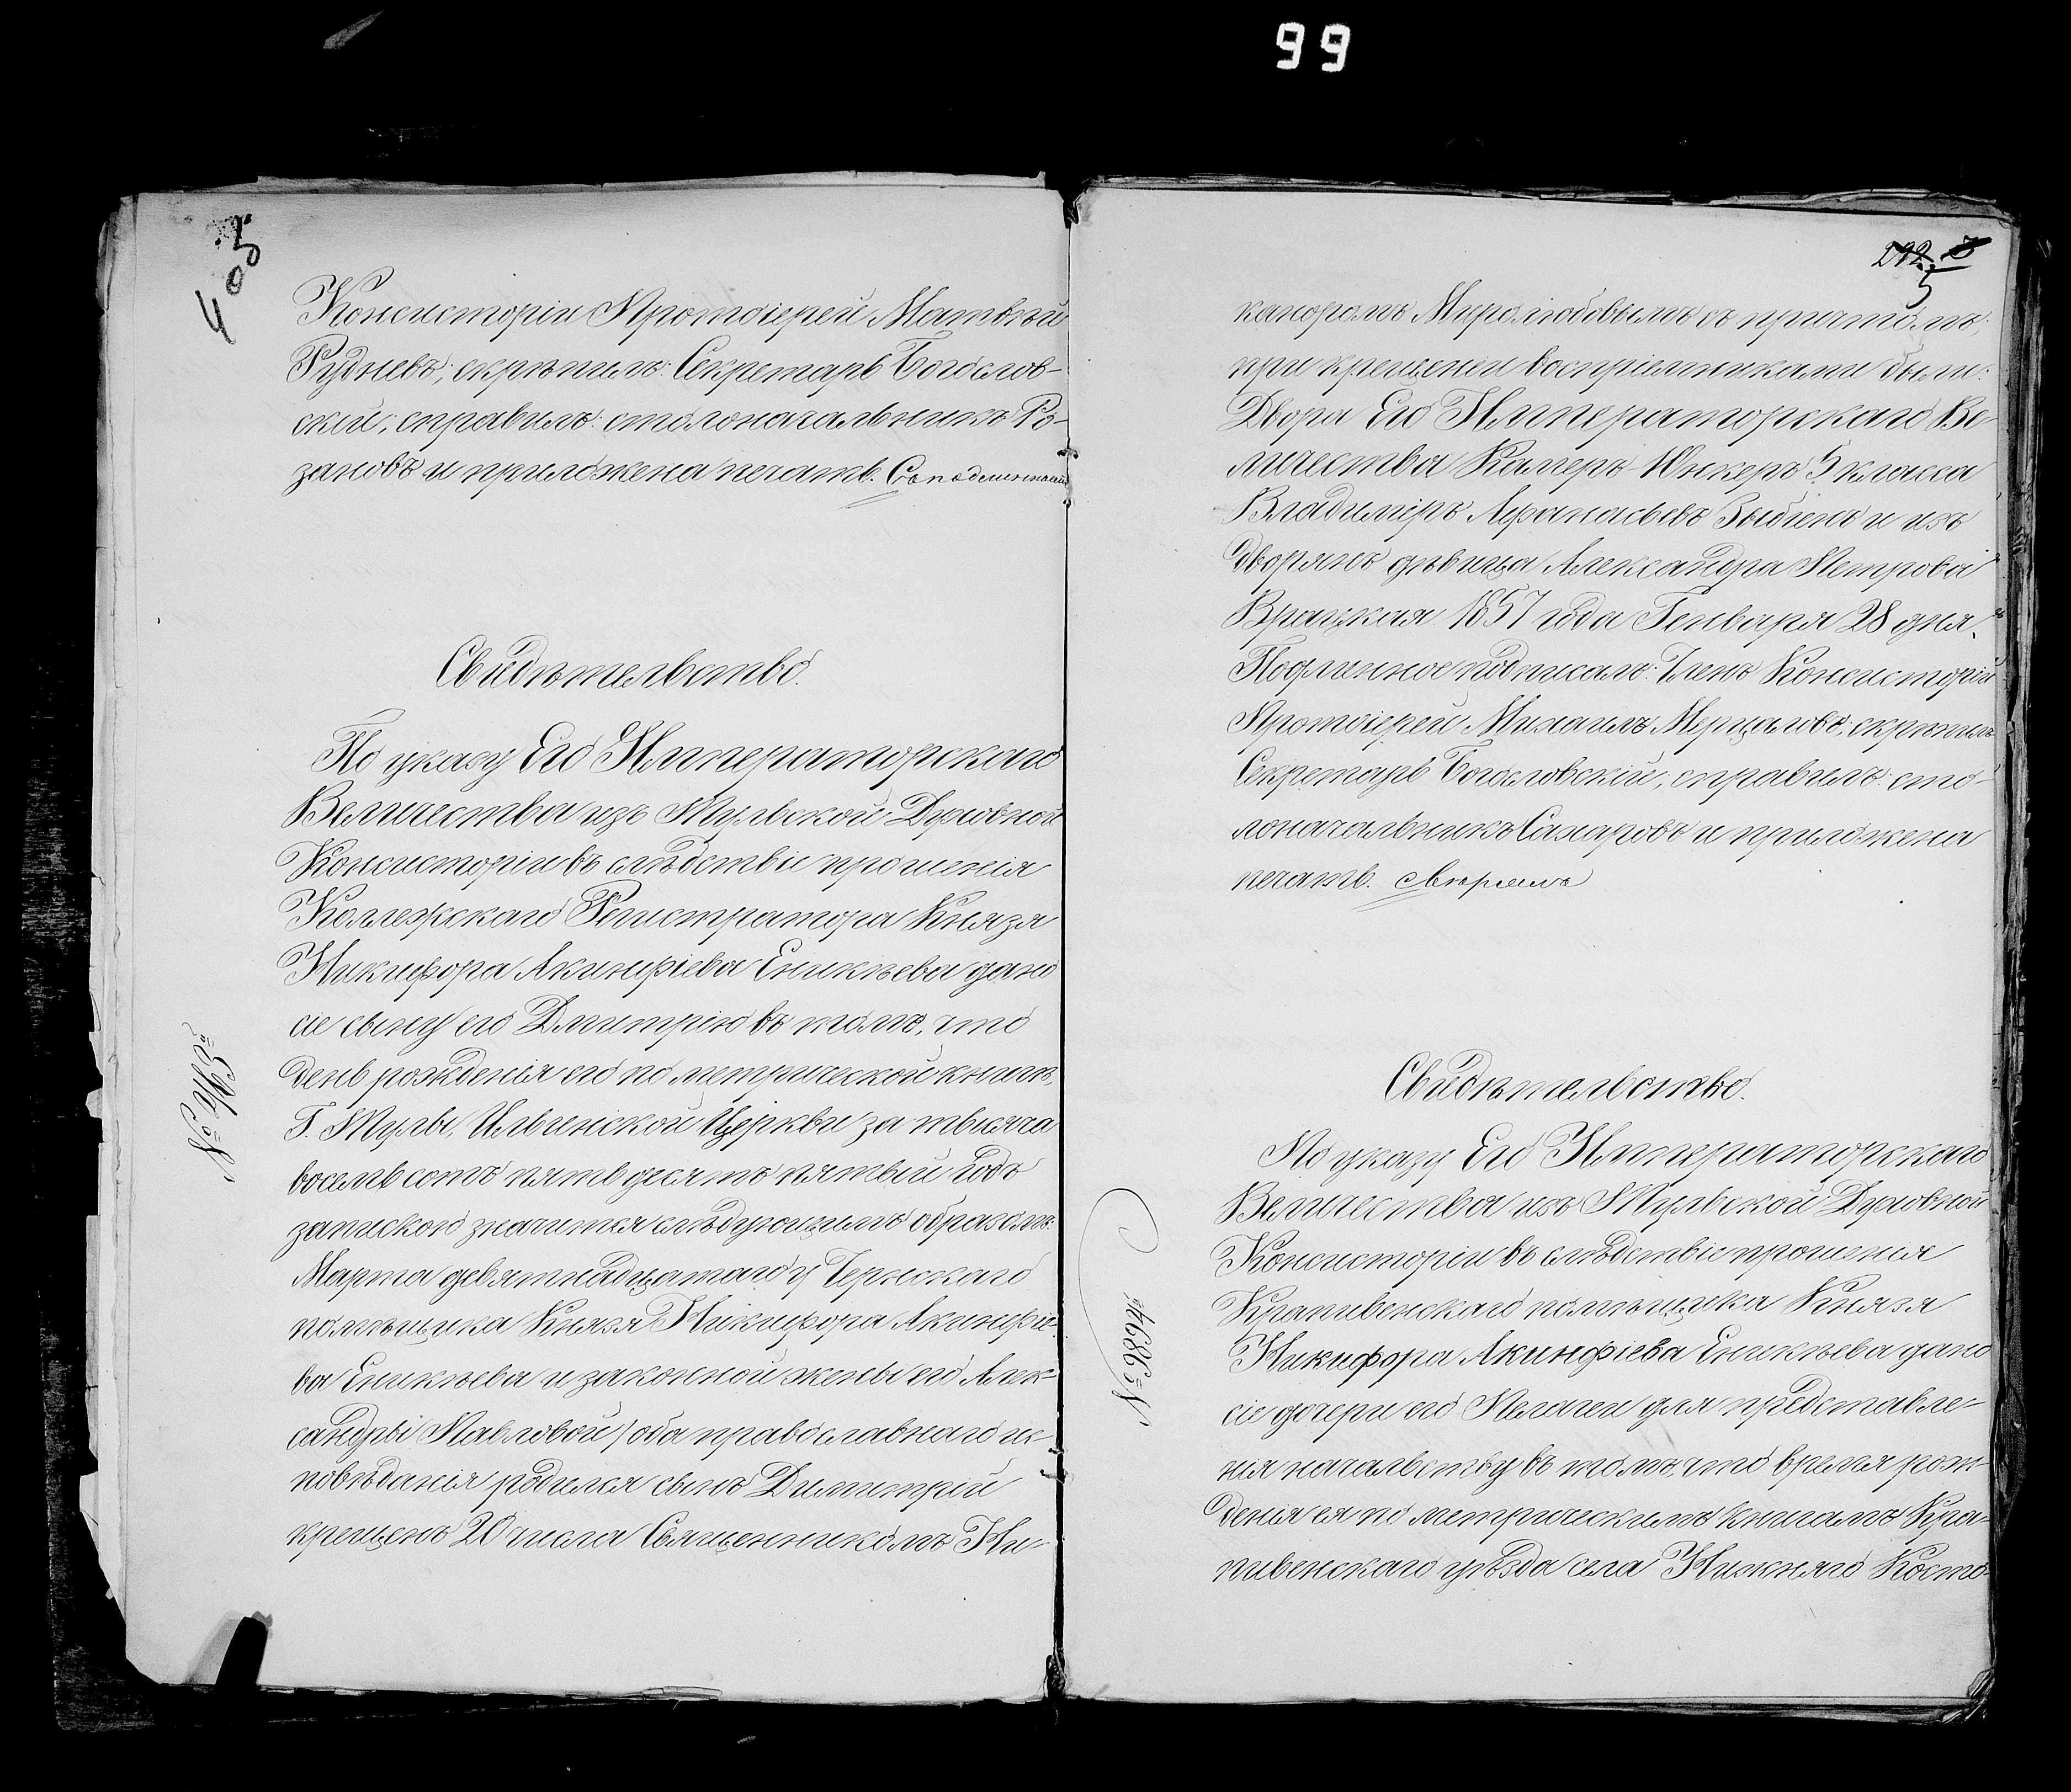 99
4 об
Консисторіи Протоіерей Матвѣй
Рудневъ; скрѣпилъ: Секретарь Богослов-
скій; справилъ: столоначальникъ Ро-
зановъ и приложена печать.
Свидѣтельство.
По указу Его Императорскаго
Величества изъ Тульской Духовной
Консисторіи въ слѣдствіе прошенія
Коллежскаго Регистратора Князя
Никифора Акинфіева Еникѣева дано
сіе сыну его Дмитрію въ томъ, что
день рожденія его по метрической книгѣ,
Г. Тулы, Ильинской Церкви за тысяча
восемь сотъ пять десятъ пятый годъ
запискою значится слѣдующимъ образомъ:
Марта девятнадцатаго у Чернскаго
помѣщика Князя Никифора Акинфіе-
ва Еникѣева и законной жены его Алек-
сандры Павловой /оба православнаго ис-
повѣданія родился сынъ Димитрій
крещенъ 20 числа Священникомъ Ни-
5
каноромъ Миролюбовымъ съ причтомъ;
при крещеніи воспріемниками были:
Двора Его Императорскаго Ве-
личества Камеръ-Юнкеръ 5 класса
Владиміръ Афанасьевъ Зыбинъ и изъ
дворянъ дѣвица Александра Петрова
1857 года Генваря 28 дня.
Подлинное подписалъ: Членъ Консисторіи
Протоіерей Михаилъ Мерцаловъ; скрѣпилъ
Секретарь Богословскій; справилъ: сто-
лоначальникъ Сахаровъ и приложена
печать. свѣрялъ
Свидѣтельство.
По указу Его Императорскаго
Величества изъ Тульской Духовной
Консисторіи въ слѣдствіе прошенія
Крапивенскаго помѣщика Князя
Никифора Акинфіева Еникѣева дано
сіе дочери его Пелагеи для представле-
нія начальству въ томъ, что время рож-
денія ея по метрическимъ книгамъ Кра-
пивенскаго уѣзда села Нижняго Косто-
№ 9864